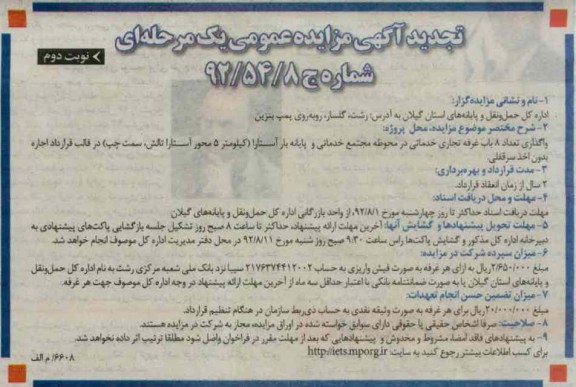 تجدید آگهی مزایده عمومی یک مرحله‌ای
نوبت دوم
شماره ج ۹۲/۵۴/۸
۱- نام و نشانی مزایده‌گزار:
اداره کل حمل‌ونقل و پایانه‌های استان گیلان به آدرس: رشت، گلسار، روبه‌روی پمپ بنزین
۲- شرح مختصر موضوع مزایده، محل پروژه:
واگذاری تعداد ۸ باب غرفه تجاری خدماتی در محوطه مجتمع خدماتی و پایانه بار آستارا (کیلومتر ۵ محور آستارا تالش، سمت چپ) در قالب قرارداد اجاره
بدون اخذ سرقفلی
۳- مدت قرارداد و بهره‌برداری:
۲ سال از زمان انعقاد قرارداد.
۴- مهلت و محل دریافت اسناد:
مهلت دریافت اسناد حداکثر تا روز چهارشنبه مورخ ۹۲/۸/۱، از واحد بازرگانی اداره کل حمل‌ونقل و پایانه‌های گیلان
۵- مهلت تحویل پیشنهادها و گشایش آنها: آخرین مهلت ارائه پیشنهاد، حداکثر تا ساعت ۸ صبح روز تشکیل جلسه بازگشایی پاکت‌های پیشنهادی به
دبیرخانه اداره کل مذکور و گشایش پاکت‌ها راس ساعت ۹:۳۰ صبح روز شنبه مورخ ۹۲/۸/۱۱ در محل دفتر مدیریت اداره کل موصوف انجام خواهد شد.
۶- میزان سپرده شرکت در مزایده:
مبلغ ۲/۶۵۰/۰۰۰ ریال به ازای هر غرفه به صورت فیش واریزی به حساب ۲۱۷۶۳۷۴۴۱۲۰۰۲ سیبا نزد بانک ملی شعبه مرکزی رشت به نام اداره کل حمل‌ونقل
و پایانه‌های استان گیلان یا به صورت ضمانتنامه بانکی با اعتبار حداقل سه ماه از آخرین مهلت ارائه پیشنهاد در وجه اداره کل موصوف جهت هر غرفه.
۷- میزان تضمین حسن انجام تعهدات:
مبلغ ۲۰/۰۰۰/۰۰۰ ریال برای هر غرفه به صورت وثیقه نقدی به حساب ذی‌ربط سازمان در هنگام تنظیم قرارداد.
۸- صلاحیت: صرفا اشخاص حقیقی یا حقوقی دارای سوابق خواسته شده در اوراق مزایده، مجاز به شرکت در مزایده هستند.
۹- به پیشنهادهای فاقد امضا، مشروط و مخدوش و پیشنهادهایی که بعد از مهلت مقرر در فراخوان واصل شود مطلقا ترتیب اثر داده نخواهد شد.
برای کسب اطلاعات بیشتر رجوع کنید به سایت: http://iets.mporg.ir
۱۶۶۰۸/ م الف